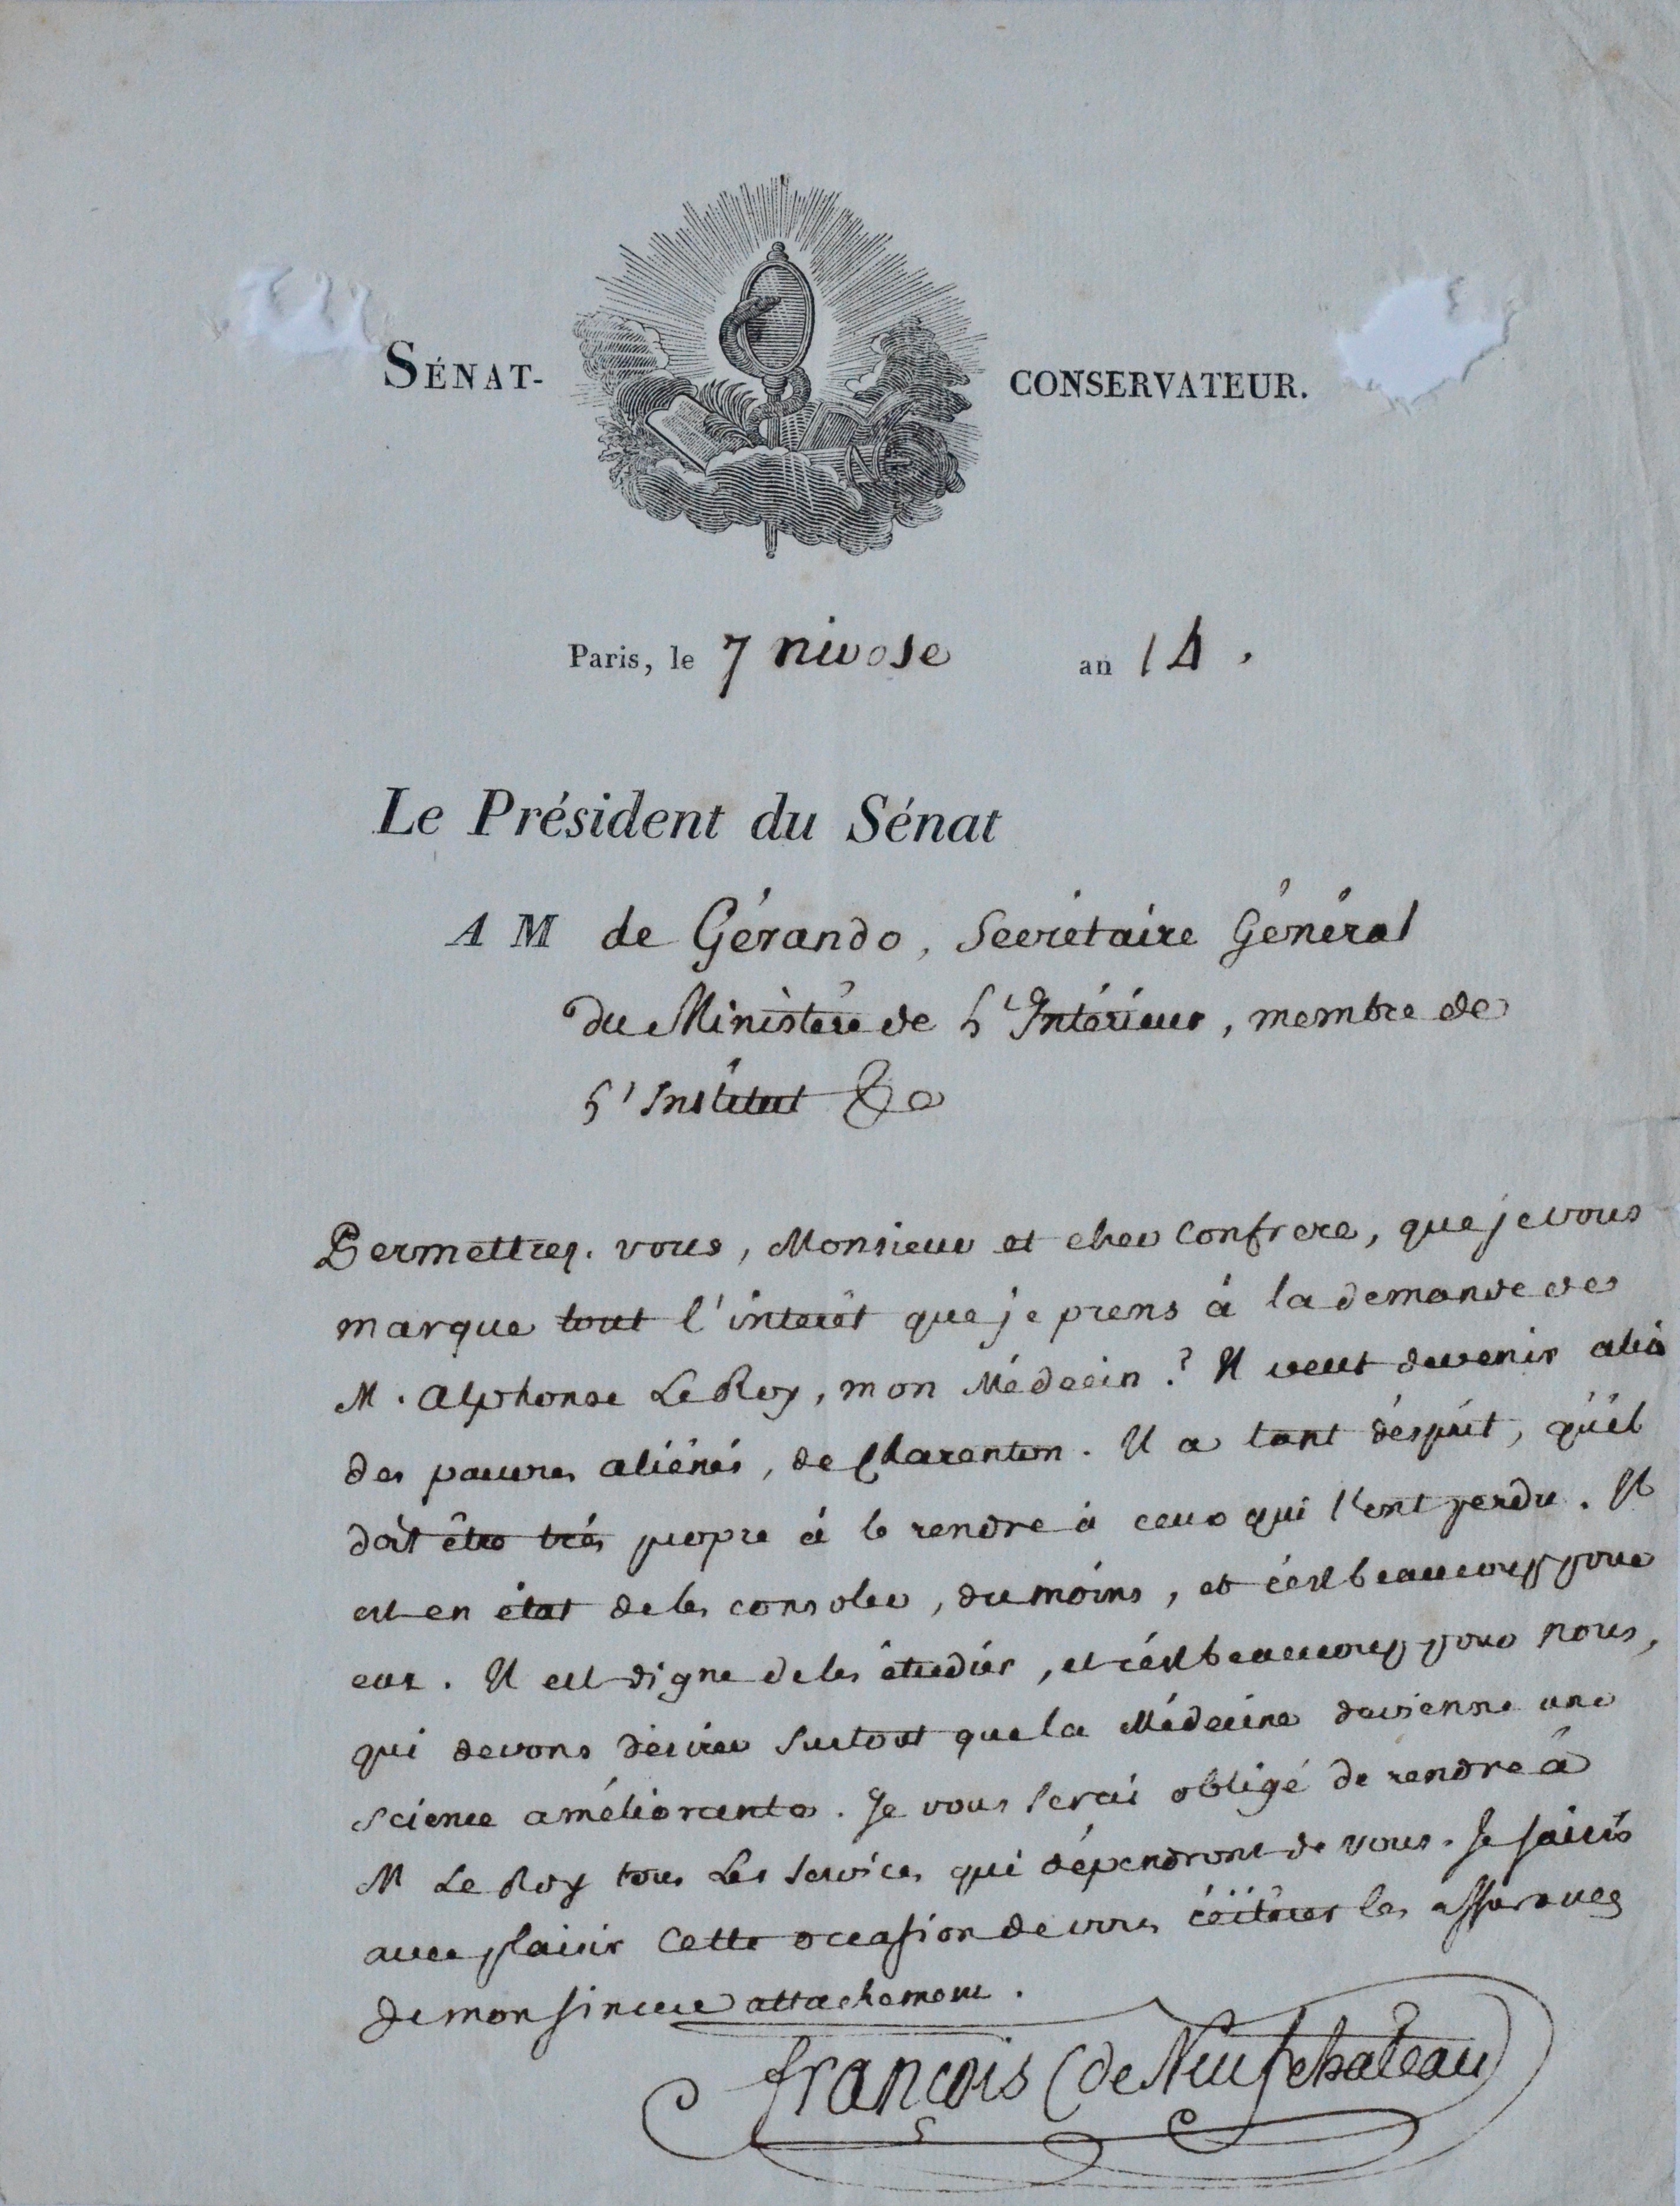 SÉNAT-CONSERVATEUR.
Paris, le 7 nivose an 14.
Le Président du Sénat
A M de Gérando, Secrétaire Général
du Ministère de L'Intérieur, membre de
L'Institut &c
Permettrez-vous, Monsieur et cher Confrere, que je vous
marque tout l'interêt que je prens à la demande de
M. Alphonse Le Roy, mon Médecin? Il veut devenir celui
des pauvres aliénés, de Charenton. Il a tant d'esprit, qu'il
doit être très propre à le rendre à ceux qui l'ont perdu. Il
est en état de les consoler, du moins, et c'est beaucoup pour
eux. Il est digne de les étudier, et c'est beaucoup pour nous,
qui devons désirer surtout que la Médecine devienne une
science améliorante. Je vous serai obligé de rendre à
M Le Roy tous les services qui dépendront de vous. Je saisis
avec plaisir cette occasion de vous réitérer les assurances
de mon sincere attachement.
françois (de Neufchateau)